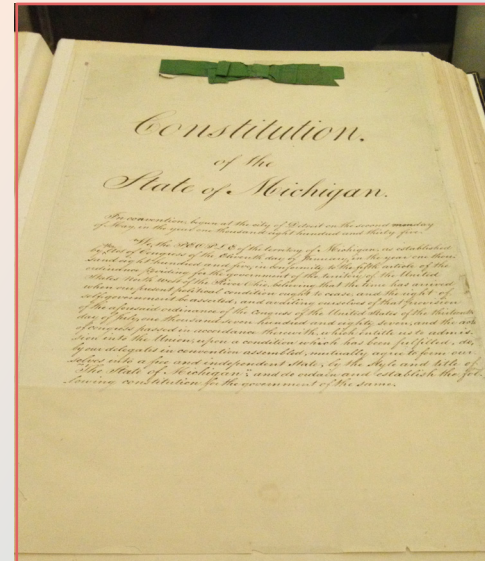 Constitution.
of the
State of Michigan.
In convention, begun at the city of Detroit on the second monday
of May, in the year one thousand eight hundred and thirty five:
We, the PEOPLE of the territory of Michigan, as established
by Act of Congress of the Eleventh day of January, in the year one thou-
sand eight hundred and five, in conformity to the fifth article of the
ordinance providing for the government of the territory of the United
States North West of the River Ohio, believing that the time has arrived
when our present political condition ought to cease, and the right of
self-government be asserted; and availing ourselves of that provision
of the aforesaid ordinance of the Congress of the United States of the thirteenth
day of July, one thousand seven hundred and eighty seven, and the acts
of congress passed in accordance therewith, which entitle us to admis-
sion into the Union, upon a condition which has been fulfilled, do,
by our delegates in convention assembled, mutually agree to form our-
selves into a free and independent State, by the style and title of
"The State of Michigan", and do ordain and establish the fol-
lowing constitution for the government of the same.